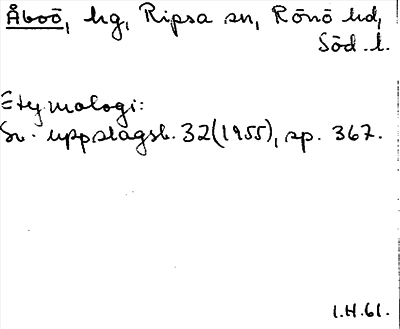 Åboö, hg, Ripsa sn, Rönö hd,
Söd. l.
Etymologi:
Sv. uppslagsb. 32(1955), sp. 367.
1.H.61.